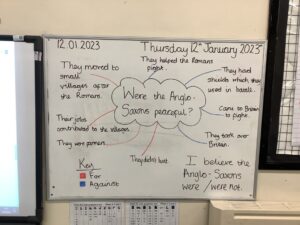 12.01.2023
Thursday 12th January 2023
They helped the Romans
fight.
They moved to
small
villages after
the Romans.
They had
shields which they
used in battle.
Were the Anglo-
Saxons peaceful?
Came to Britain
to fight.
Their jobs
contributed to the villages.
They took over
Britain.
They were farmers.
They didn't
Key
For
Against
I believe the
Anglo-Saxons
were / were not.